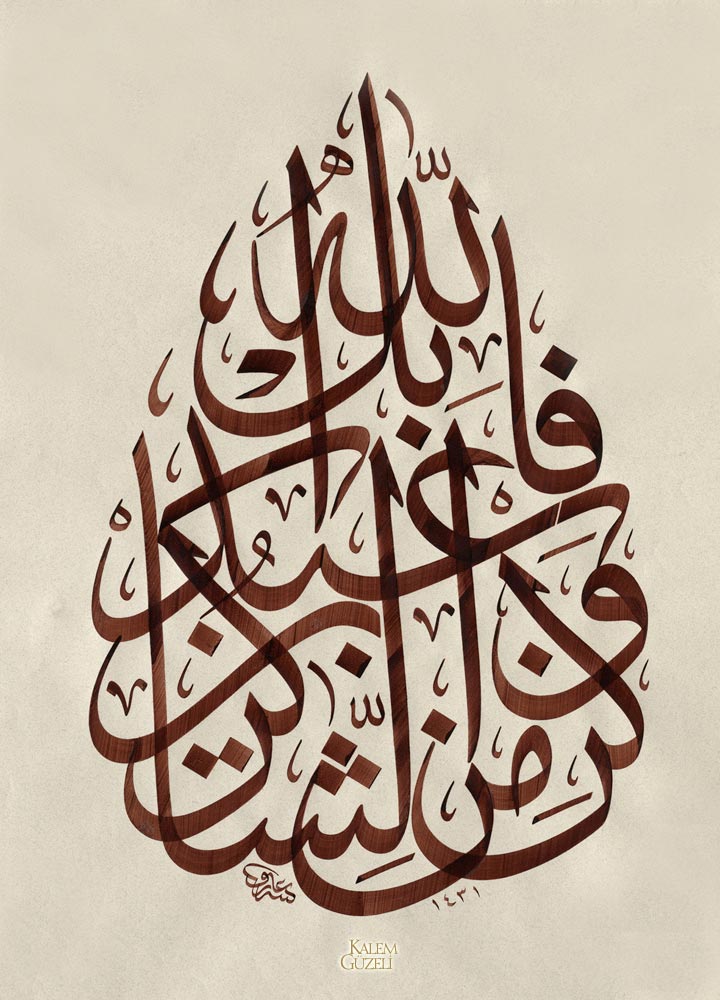 بَلِ اللّٰهَ فَاعْبُدْ
وَكُنْ مِنَ الشّٰاكِرِينَ
١٤٣١
KALEM
GÜZELI